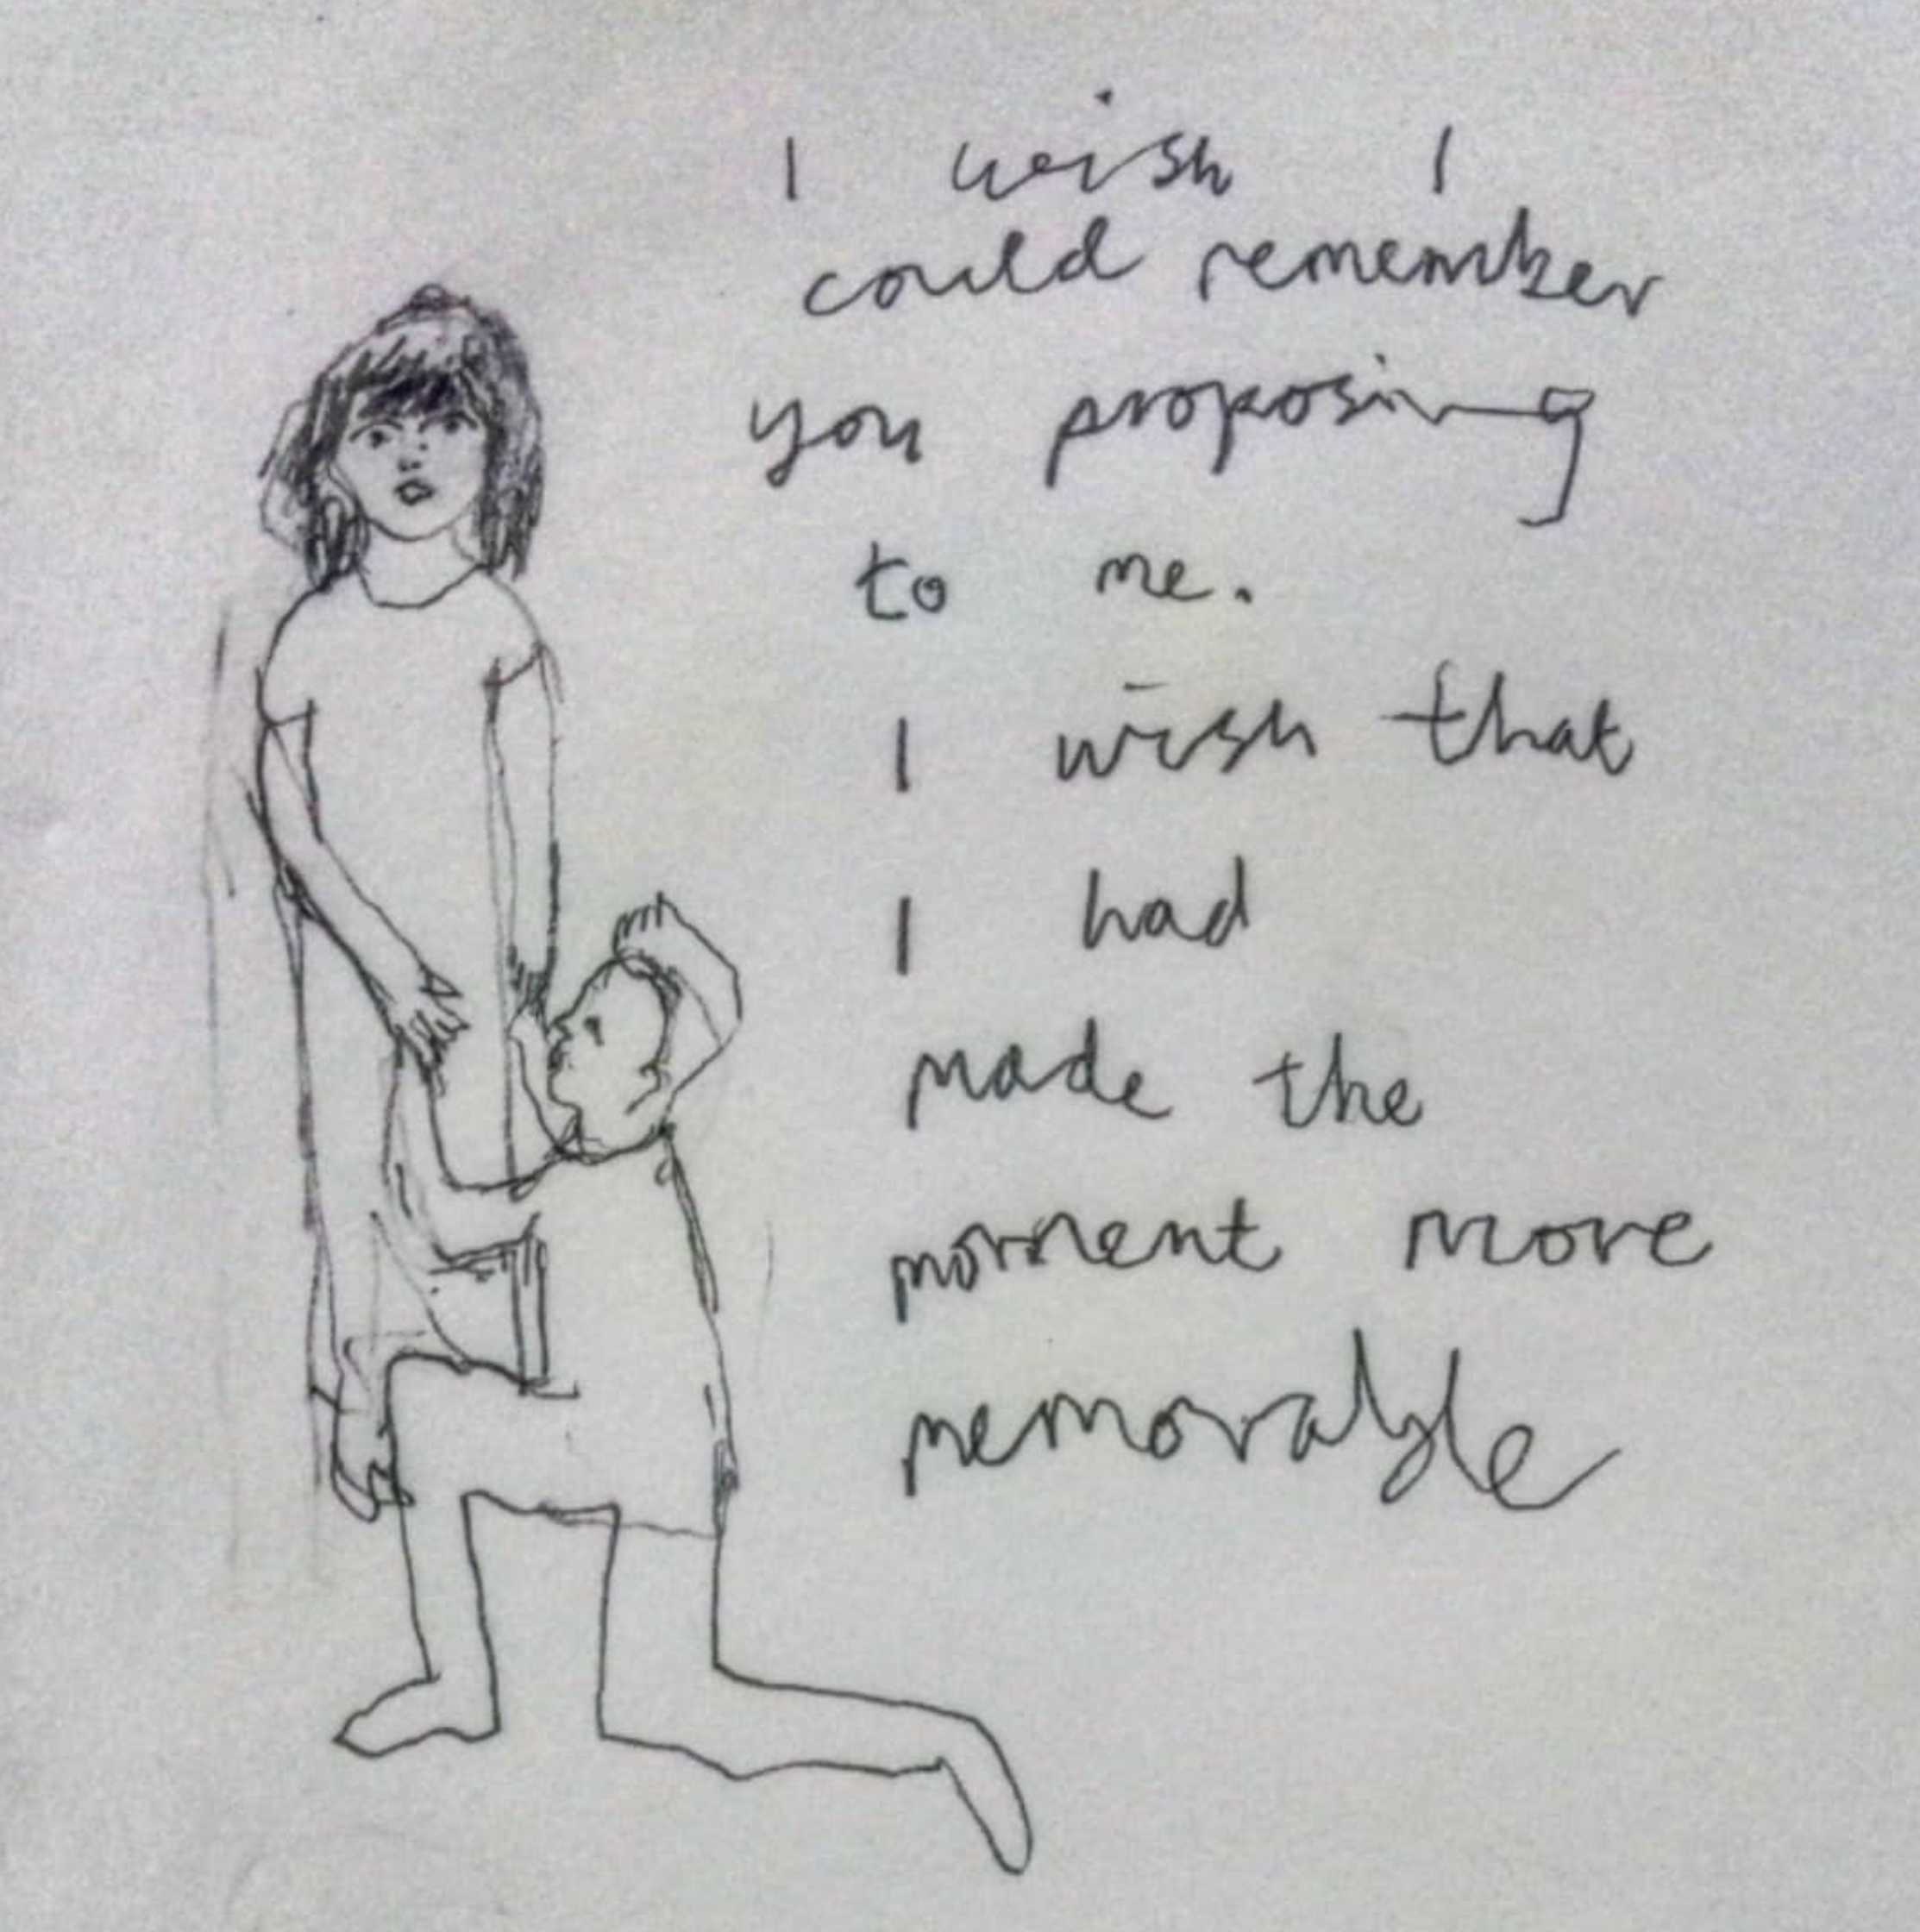 I wish I
could remember
you proposing
to me.
I wish that
I had
made the
moment more
memorable